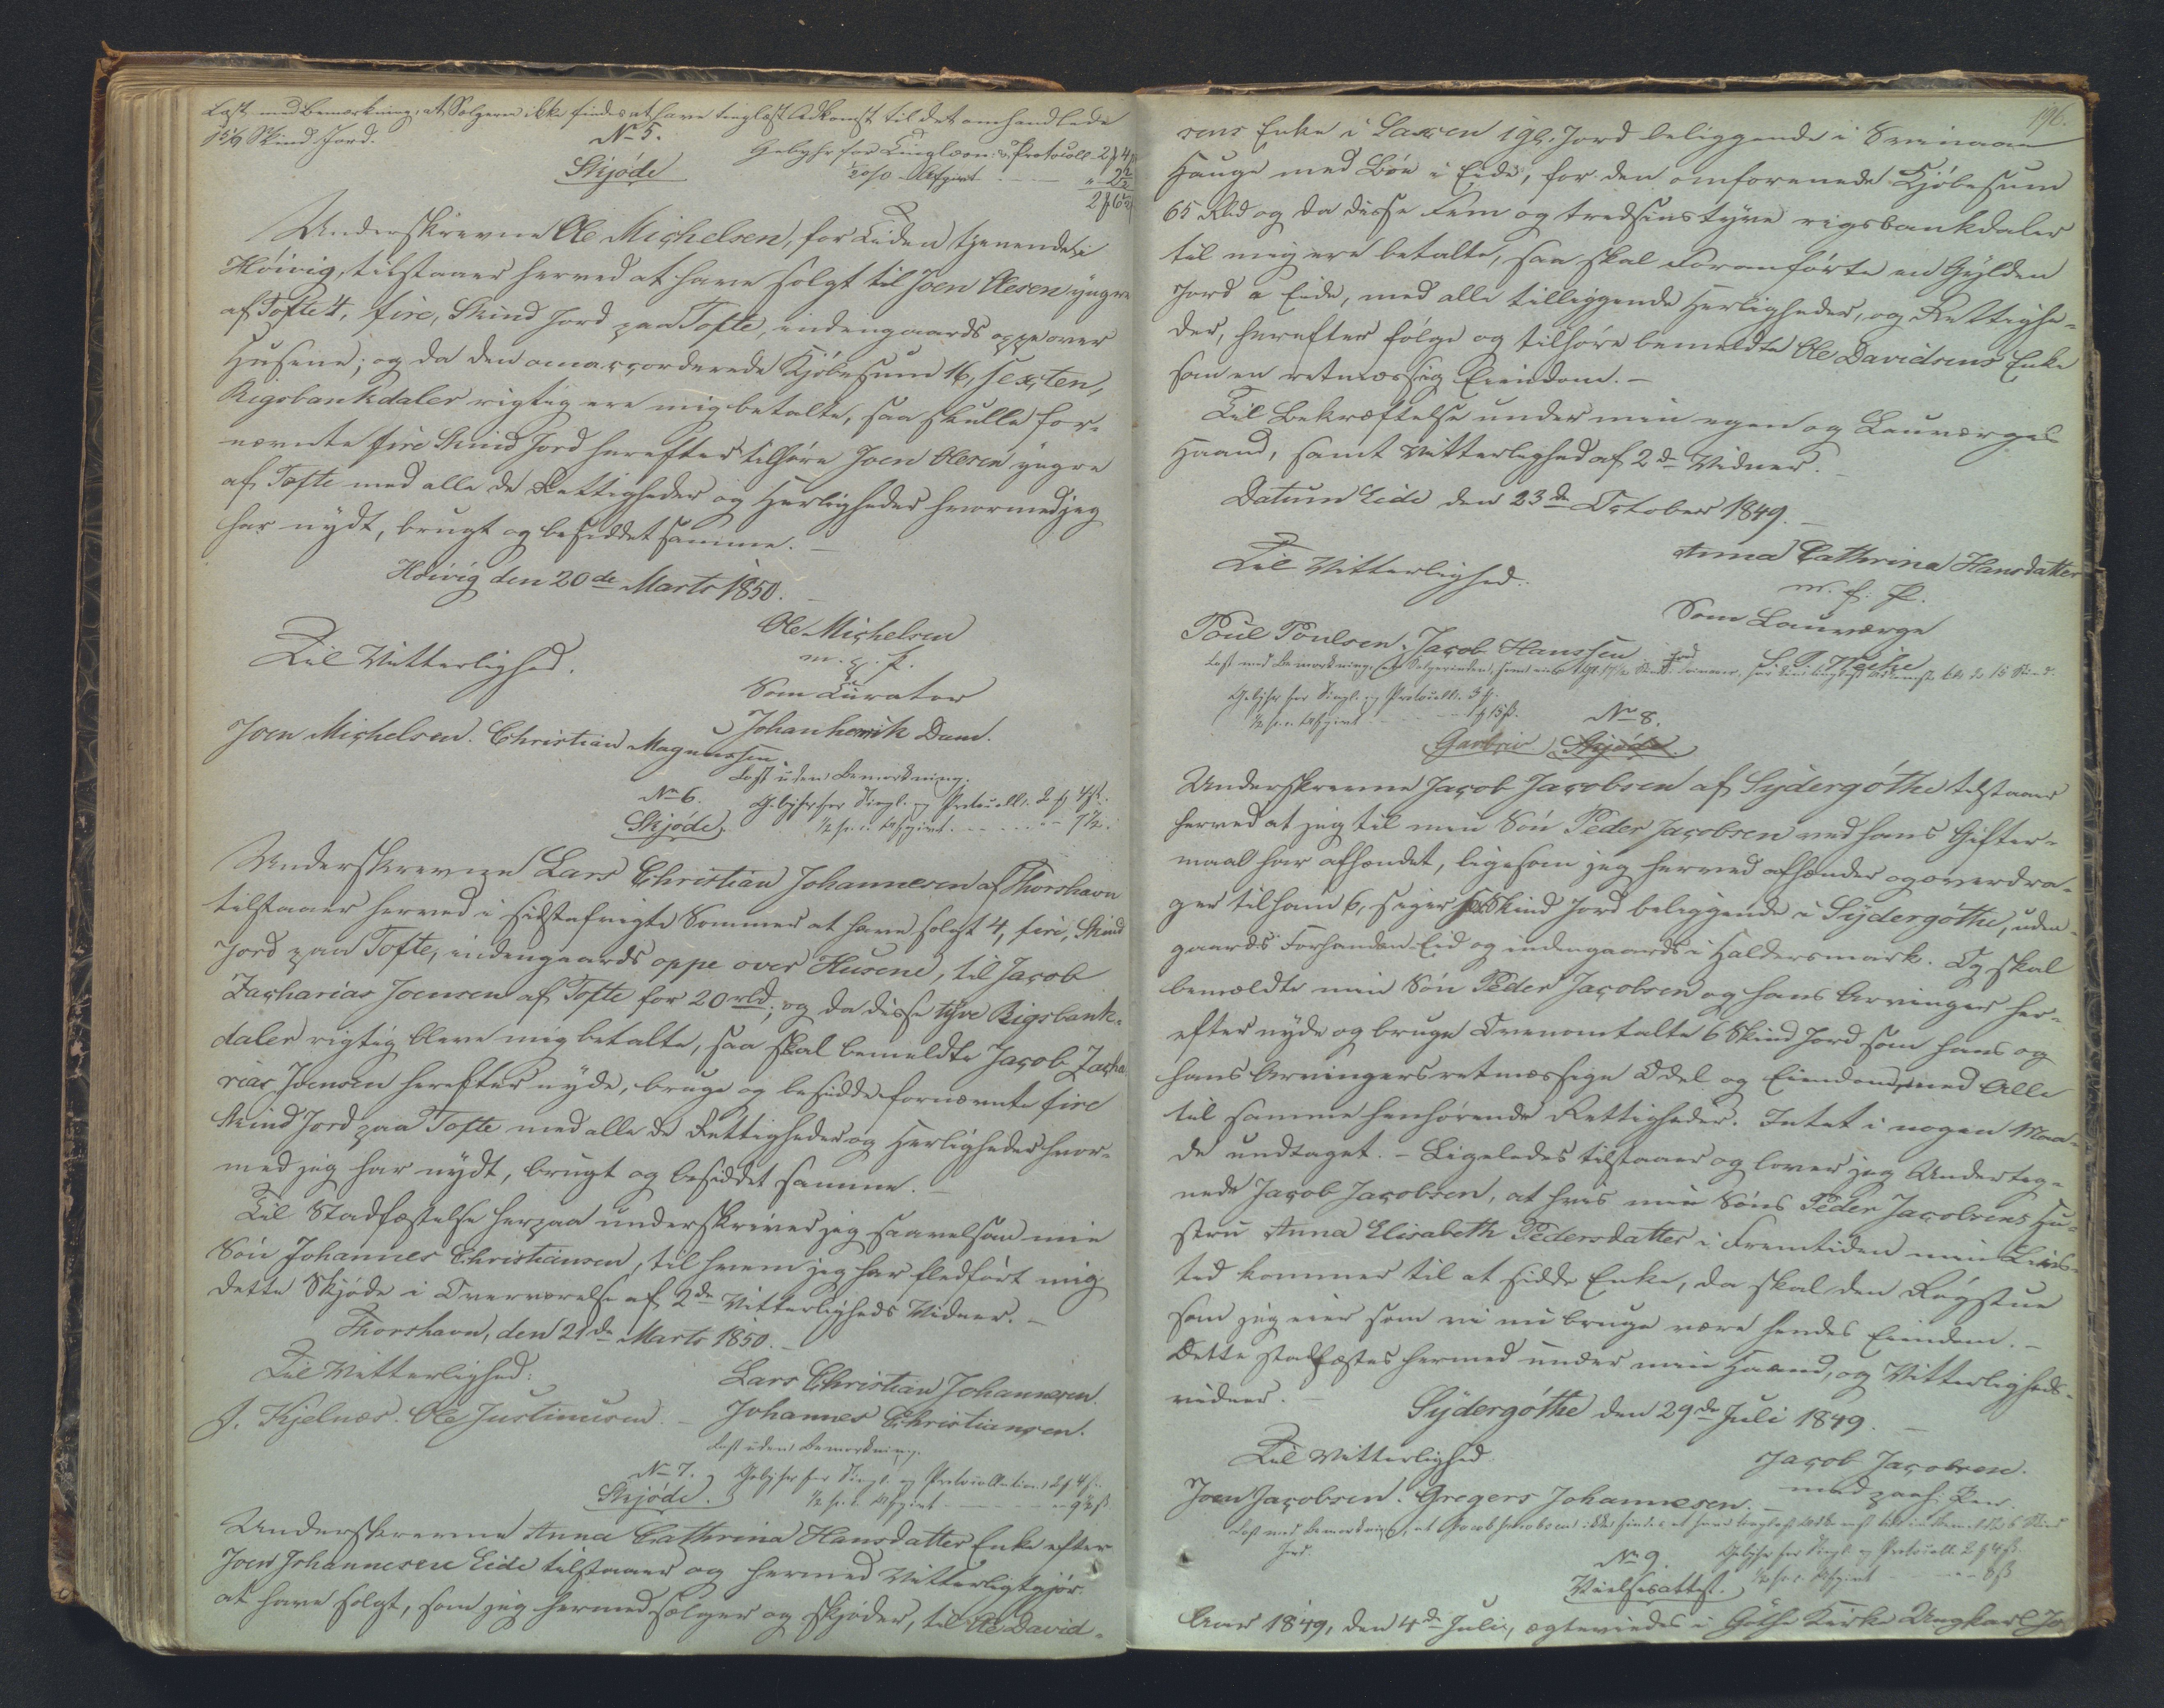 Læst med Bemærkning, at Sælgeren ikke findes at have tinglæst Adkomst til det omhandlede
Skind Jord.
No 5.
Skjøde
Gebyhr for Tinglæsn. & Protocoll. 2 f 4
½ o/o Afgivt
Underskrevne Ole Michelsen, for Tiden tjenende i
Höivig, tilstaaer herved at have solgt til Joen Olesen yngre
af Tofte 4, fire, Skind Jord paa Tofte, indengaards oppe over
Husene; og da den omaccorderede Kjöbesum 16, sexten,
Rigsbankdaler rigtig ere mig betalte, saa skulle for-
nævnte fire Skind Jord herefter tilhöre Joen Olesen yngre
af Tofte med alle de Rettigheder og Herligheder hvormed jeg
har nydt, brugt og besiddet samme. –
Höivig den 20de Marts 1850. –
Ole Michelsen
m. f. P.
Til Vitterlighed.
Som Curator
Johan henrik Dam.
Joen Michelsen. Christian Magnussen.
Læst uden Bemærkning.
No 6.
Gebyhr for Tingl. og Protocoll. 2 f 4 ß.
Skjøde.
½ pr. c. Afgivt . . . . . 7½.
Underskrevne Lars Christian Johannesen af Thorshavn
tilstaaer herved i sidstafvigte Sommer at have solgt 4, fire, Skind
Jord paa Tofte, indengaards oppe over Husene, til Jacob
Zacharias Joensen af Tofte for 20 rbd; og da disse tyve Rigsbank-
daler rigtig bleve mig betalte, saa skal bemeldte Jacob Zacha-
rias Joensen herefter nyde, bruge og besidde fornævnte fire
Skind Jord paa Tofte med alle de Rettigheder og Herligheder hvor-
med jeg har nydt, brugt og besiddet samme. –
Til Stadfæstelse herpaa underskriver jeg saavelsom min
Sön Johannes Christiansen, til hvem jeg har fledfört mig
dette Skjöde i Overværelse af 2de Vitterligheds Vidner. –
Thorshavn, den 21de Marts 1850. –
Til Vitterlighed:
Lars Christian Johannesen.
J. Kjelnæs. Ole Justinusen. –
Johannes Christiansen.
Læst uden Bemærkning.
No 7.
Gebyhr for Tingl. og Protocollation 2 f 4 ß.
Skjøde.
½ pr. c. Afgivt
Underskrevne Anna Cathrina Hansdatter Enke efter
Joen Johannesen Eide tilstaaer og hermed Vitterligtgjör
at have solgt, som jeg hermed sælger og skjöder, til Ole David-
196.
sens Enke i 1 gl. Jord beliggende i
Hauge med Böe i Eide, for den omforenede Kjöbesum
65 Rbd og da disse Fem og tredsinstyve rigsbankdaler
til mig ere betalte, saa skal Foranförte en Gylden
Jord a Eide, med alle tilliggende Herligheder, og Rettighe-
der, herefter fölge og tilhöre bemeldte Ole Davidsens Enke
som en retmæssig Eiendom. –
Til Bekræftelse under min egen og Lauværges
Haand, samt Vitterlighed af 2de Vidner. –
Datum Eide den 23de October 1849. –
Til Vitterlighed.
Anna Cathrina Hansdatter
m. f. P.
Som Lauværge
Poul Poulsen. Jacob Hanssen
Læst med Bemærkning, at Sælgerinden
Gebyhr for Tingl. og Protocoll. 3 f.
½ pr. c. Afgivt . . . 1 f 15 ß.
No 8.
Gavbrev Skjøde.
Underskrevne Jacob Jacobsen af Sydergöthe tilstaaer
herved at jeg til min Sön Peder Jacobsen ved hans Gifter-
maal har afhændet, ligesom jeg herved afhænder og overdra-
ger til ham 6, siger sex Skind Jord beliggende i Sydergöthe, uden-
gaards Forhanden Eid og indengaards i Haldersmark. Og skal
bemeldte min Sön Peder Jacobsen og hans Arvinger her-
efter nyde og bruge Ovenomtalte 6 Skind Jord som hans og
hans Arvingers retmæssige Odel og Eiendom, med Alle
til samme henhörende Rettigheder. Intet i nogen Maa-
de undtaget. – Ligeledes tilstaaer og lover jeg Underteg-
nede Jacob Jacobsen, at hvis min Söns Peder Jacobsens Hu-
stru Anna Elisabeth Pedersdatter i Fremtiden min Livs-
tid kommer til at sidde Enke, da skal den Rögstue
som jeg eier som vi nu bruge være hendes Eiendom. –
Dette stadfæstes hermed under min Haand, og Vitterligheds-
vidner. –
Sydergöthe den 29de Juli 1849. –
Til Vitterlighed.
Jacob Jacobsen.
med paah. Pen.
Joen Jacobsen. Gregers Johannesen. –
Læst med Bemærkning, at Jacob Jacobsen ikke findes at have tinglæst Adkomst til de 6 Skind
Jord.
No 9.
Gebyhr for Tingl. og Protocoll. 2 f 4 ß.
Vielsesattest.
½ pr. c. Afgivt – 8 ß
Aar 1849, den 4de Juli, ægteviedes i Göthe Kirke Ungkarl Jo